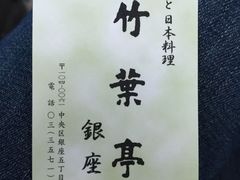 と日本料理
竹葉亭
銀座
〒一〇四-〇〇六一 中央区銀座五丁目
電話 〇三(三五七一)